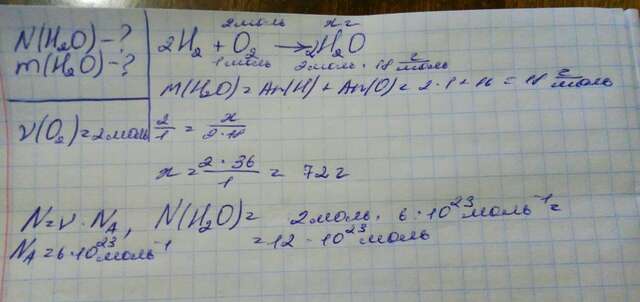 N(H₂O)-?
m(H₂O)-?
2моль x г
2H₂ + O₂ → 2H₂O
1моль 2моль · 18 г/моль
M(H₂O) = Ar(H) + Ar(O) = 2·1+16 = 18 г/моль
ν(O₂)=2моль
2/1 = x/2·18
x = 2·36/1 = 72г
N=ν·Nₐ, N(H₂O)= 2моль · 6·10²³моль⁻¹=
Nₐ=6·10²³моль⁻¹ =12·10²³моль